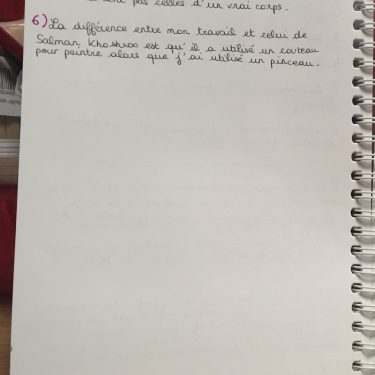 pas celles d'un vrai corps.
6) La différence entre mon travail et celui de
Salman Khoshroo est qu'il a utilisé un couteau
pour peintre alors que j'ai utilisé un pinceau.